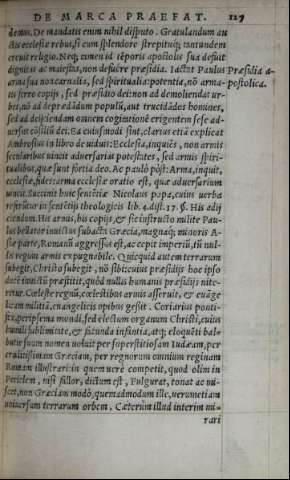 DE MARCA PRAEFAT. 127
demus. De mandatis enim nihil disputo. Gratulandum an
ctis ecclesiæ rebus, si cum splendore strepituq; tantundem
creuit religio. Neq; enim id tẽporis apostolis sua defuit
dignitas ac maiestas, non defuere præsidia. Iactat Paulus
Præsidia a-
postolica.
arma sua non carnalia, sed spiritualia: potentia, nõ arma-
tis ferro copijs, sed præsidio dei: non ad demoliendas ur-
bes, nõ ad deprædãdum populũ, aut trucidãdos homines,
sed ad deijciendam omnem cogitationẽ erigentem sese ad-
uersus cõsiliũ dei. Ea cuiusmodi sint, clarius etiã explicat
Ambrosius in libro de uiduis: Ecclesia, inquiẽs, non armis
secularibus uincit aduersarias potestates, sed armis spiri-
tualibus, quæ sunt fortia deo. Ac paulò pòst: Arma, inquit,
ecclesiæ, fides: arma ecclesiæ oratio est, quæ aduersarium
uincat. Succinit huic sentẽtiæ Nicolaus papa, cuius uerba
referũtur in sentẽtijs theologicis lib. 4. dist. 37. §. His adij
ciendum. His armis, his copijs, & sic instructo milite Pau-
lus bellator inuictus subacta Græcia, magnaq; minoris A-
siæ parte, Romanũ aggressus est, ac cepit imperiũ, tũ nul-
lis regum armis expugnabile. Quicquid autem terrarum
subegit, Christo subegit, nõ sibi: cuius præsidijs hoc ipso
duce inuictũ præstitit, quòd nullis humanis præsidijs nite-
retur. Cœleste regnũ, cœlestibus armis asseruit, & euãge
licam militiã, euangelicis opibus gessit. Coriarius ponti-
fex, peripsema mundi, sed electum organum Christi, cuius
humili sublimitate, & facunda infantia, atq; eloquẽti bal-
butie suum nomen uoluit per superstitiosam Iudæam, per
eruditissimam Græciam, per regnorum omnium reginam
Romam illustrari: in quem uerè competit, quod olim in
Periclem, nisi fallor, dictum est, Fulgurat, tonat ac mi-
scet, non Græciam modò, quemadmodum ille, uerumetiam
uniuersum terrarum orbem. Cæterùm illud interim mi-
rari